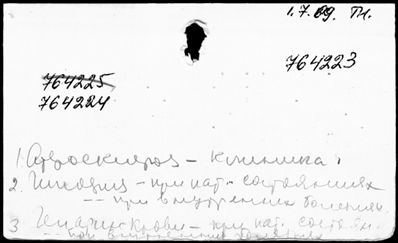 1.7.69. Тл.
764223
764225
764224
1. Атеросклероз – клиника.
2. Гипоксия – при пат. состояниях
– – при внутренних болезнях.
3 Гепарин крови – при пат. состоян.
– – при внутренних болезнях